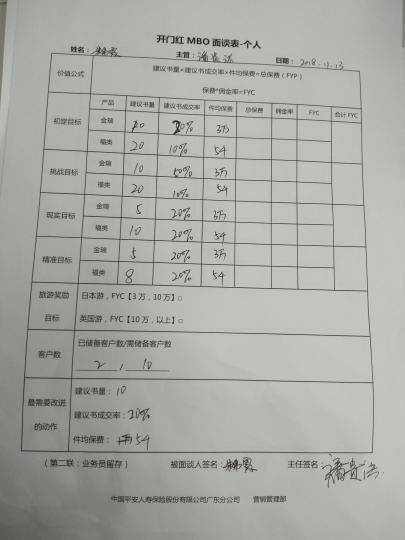 开门红 MBO 面谈表-个人
姓名： 主管： 日期：2018.11.13
价值公式 建议书量×建议书成交率×件均保费=总保费（FYP）
保费*佣金率=FYC
产品 建议书量 建议书成交率 件均保费 总保费 佣金率 FYC 合计 FYC
初定目标 金瑞 10 20% 3万
福类 20 10% 54
挑战目标 金瑞 10 50% 3万
福类 20 10% 54
现实目标 金瑞 5 20% 3万
福类 10 20% 54
精准目标 金瑞 5 20% 3万
福类 8 20% 54
旅游奖励 日本游，FYC【3 万，10 万】□
目标 英国游，FYC【10 万，以上】□
客户数 已储备客户数/需储备客户数
2 , 10
最需要改进 建议书量：10
的动作 建议书成交率：20%
件均保费： 54
（第二联：业务员留存） 被面谈人签名： 主任签名：
中国平安人寿保险股份有限公司广东分公司 营销管理部